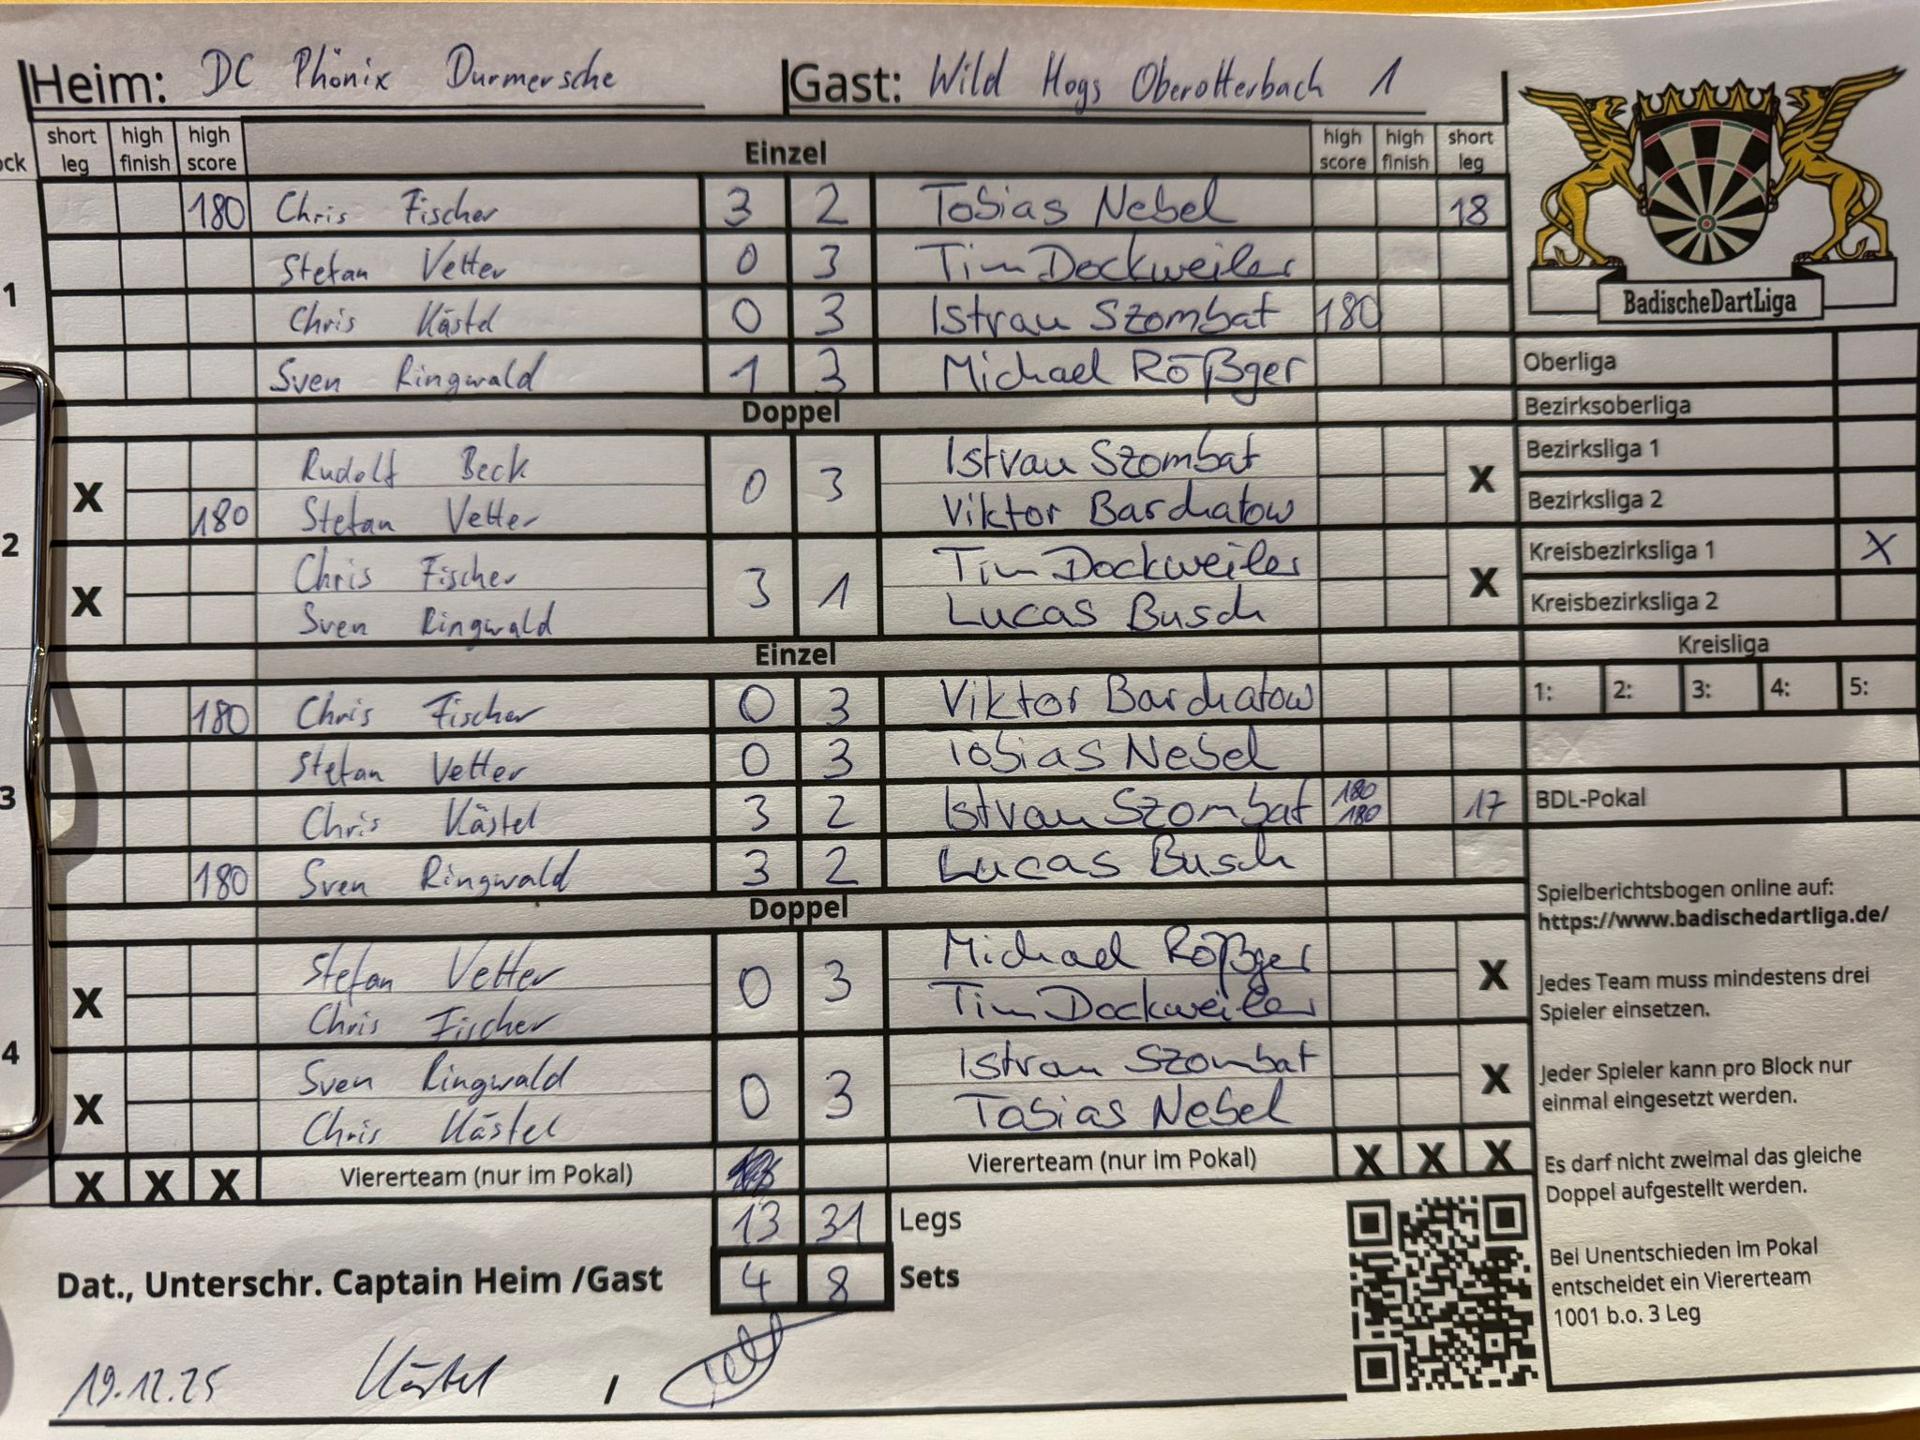 Heim: DC Phönix Durmersche Gast: Wild Hogs Oberotterbach 1
ock short leg high finish high score Einzel high score high finish short leg
180 Chris Fischer 3 2 Tobias Nebel 18
Stefan Vetter 0 3 Tim Dockweiler
1
Chris Kästel 0 3 Istvan Szombat 180
Sven Ringwald 1 3 Michael Rößger
Doppel
Rudolf Beck
X 0 3 X
180 Stefan Vetter
Istvan Szombat
Viktor Bardratow
2
Chris Fischer
X 3 1 X
Sven Ringwald
Tim Dockweiler
Lucas Busch
Einzel
180 Chris Fischer 0 3 Viktor Bardratow
Stefan Vetter 0 3 Tobias Nebel
3
Chris Kästel 3 2 Istvan Szombat 180 180 17
180 Sven Ringwald 3 2 Lucas Busch
Doppel
Stefan Vetter
X 0 3 X
Chris Fischer
Michael Rößger
Tim Dockweiler
4
Sven Ringwald
X 0 3 X
Chris Kästel
Istvan Szombat
Tobias Nebel
X X X Viererteam (nur im Pokal) Viererteam (nur im Pokal) X X X
13 31 Legs
Dat., Unterschr. Captain Heim /Gast 4 8 Sets
19.12.25 Kästel /
BadischeDartLiga
Oberliga
Bezirksoberliga
Bezirksliga 1
Bezirksliga 2
Kreisbezirksliga 1 X
Kreisbezirksliga 2
Kreisliga
1: 2: 3: 4: 5:
BDL-Pokal
Spielberichtsbogen online auf:
https://www.badischedartliga.de/
Jedes Team muss mindestens drei
Spieler einsetzen.
Jeder Spieler kann pro Block nur
einmal eingesetzt werden.
Es darf nicht zweimal das gleiche
Doppel aufgestellt werden.
Bei Unentschieden im Pokal
entscheidet ein Viererteam
1001 b.o. 3 Leg